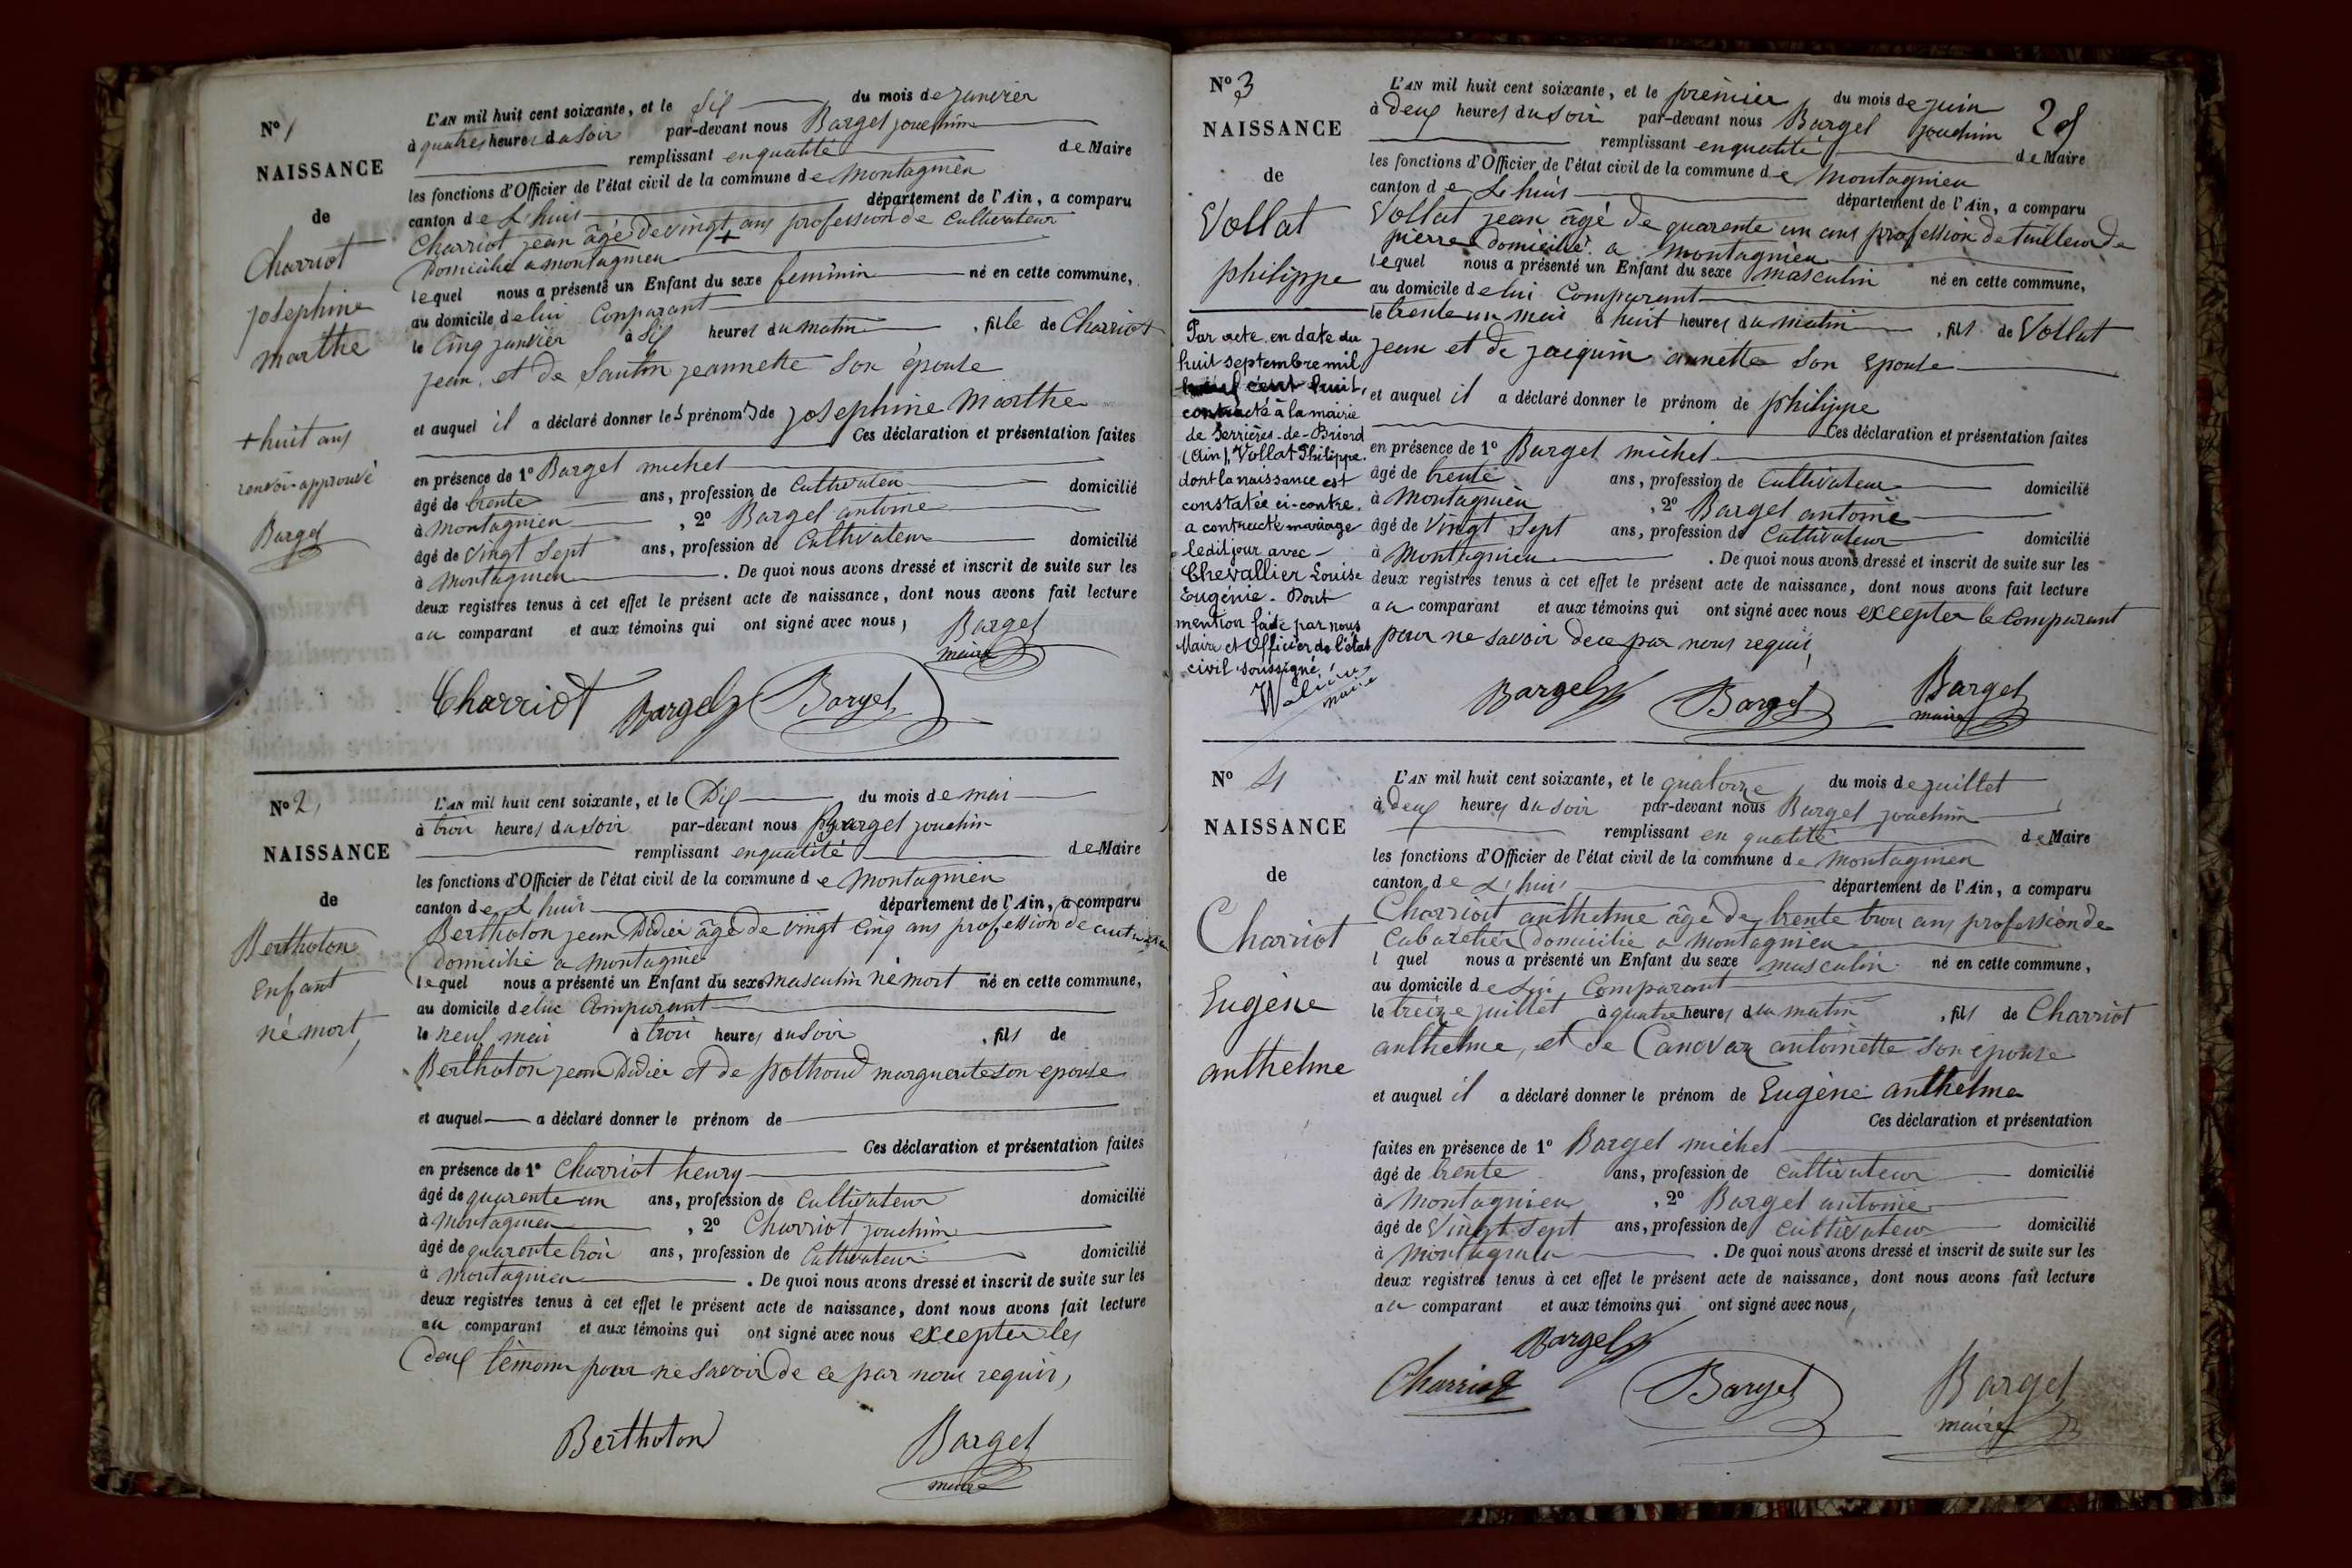 Nº 1
NAISSANCE
de
Charriot
josephine
marthe
+ huit ans
renvoi approuvé
Bargel
L'AN mil huit cent soixante, et le six du mois de janvier
à quatres heures du soir par-devant nous Bargel jouchim
remplissant enqualité de Maire
les fonctions d'Officier de l'état civil de la commune de Montagnieu
canton de L'huis département de l'Ain, a comparu
Charriot jean âgé de vingt + ans profession de cultivateur
Domicilié a montagnieu
lequel nous a présenté un Enfant du sexe feminin né en cette commune,
au domicile de lui Comparant
le Cinq janvier à six heures du matin, fille de Charriot
jean, et de Santin jeannette son épouse
et auquel il a déclaré donner les prénoms de josephine Marthe
Ces déclaration et présentation faites
en présence de 1º Bargel michel
âgé de trente ans, profession de Cultivateur domicilié
à Montagnieu, 2º Bargel antoine
âgé de Vingt Sept ans, profession de Cultivateur domicilié
à Montagnieu. De quoi nous avons dressé et inscrit de suite sur les
deux registres tenus à cet effet le présent acte de naissance, dont nous avons fait lecture
au comparant et aux témoins qui ont signé avec nous,
Bargel
maire
Charriot Bargel Bargel
Nº 2,
NAISSANCE
de
Bertholon
enfant
né mort,
L'AN mil huit cent soixante, et le Dix du mois de mai
à trois heures du soir par-devant nous Bargel jouchin
remplissant enqualité de Maire
les fonctions d'Officier de l'état civil de la commune de Montagnieu
canton de L'huis département de l'Ain, a comparu
Bertholon jean Didier âgé de vingt Cinq ans profession de
domicilié a Montagnie
lequel nous a présenté un Enfant du sexe masculin né mort né en cette commune,
au domicile de lui Comparant
le neuf mai à trois heures du soir, fils de
Bertholon jean Didier et de pothoud marguerite son epouse
et auquel a déclaré donner le prénom de
Ces déclaration et présentation faites
en présence de 1º Charriot henry
âgé de quarente un ans, profession de Cultivateur domicilié
à Montagnieu, 2º Charriot jouchim
âgé de quarente trois ans, profession de Cultivateur domicilié
à Montagnieu. De quoi nous avons dressé et inscrit de suite sur les
deux registres tenus à cet effet le présent acte de naissance, dont nous avons fait lecture
au comparant et aux témoins qui ont signé avec nous excepter les
deux témoins pour ne savoir de ce par nous requis,
Bertholon Bargel
maire
Nº 3
NAISSANCE
de
Vollat
philippe
Par acte en date du
huit septembre mil
cent huit,
contracté à la mairie
de Serrières-de-Briord
(Ain), Vollat Philippe.
dont la naissance est
constatée ci-contre,
a contracté mariage
ledit jour avec
Chevallier Louise
Eugénie. Dont
mention faite par nous
Maire et Officier de l'état
civil soussigné.
maire
L'AN mil huit cent soixante, et le premier du mois de juin
à deux heures du soir par-devant nous Bargel jouchim
remplissant enqualité de Maire
les fonctions d'Officier de l'état civil de la commune de Montagnieu
canton de L'huis département de l'Ain, a comparu
Vollat jean âgé de quarente un ans profession de tailleur de
pierres domicilié a Montagnieu
lequel nous a présenté un Enfant du sexe masculin né en cette commune,
au domicile de lui Comparant
le trente un mai à huit heures du matin, fils de Vollat
jean et de jacquin annette son epouse
et auquel il a déclaré donner le prénom de philippe
Ces déclaration et présentation faites
en présence de 1º Bargel michel
âgé de trente ans, profession de Cultivateur domicilié
à Montagnieu, 2º Bargel antoine
âgé de Vingt Sept ans, profession de Cultivateur domicilié
à Montagnieu. De quoi nous avons dressé et inscrit de suite sur les
deux registres tenus à cet effet le présent acte de naissance, dont nous avons fait lecture
au comparant et aux témoins qui ont signé avec nous excepter le Comparant
pour ne savoir de ce par nous requis,
Bargel Bargel Bargel
maire
Nº 4
NAISSANCE
de
Charriot
Eugène
anthelme
L'AN mil huit cent soixante, et le quatorze du mois de juillet
à deux heures du soir par-devant nous Bargel jouchim
remplissant en qualité de Maire
les fonctions d'Officier de l'état civil de la commune de Montagnieu
canton de L'huis département de l'Ain, a comparu
Charriot anthelme âgé de trente trois ans profession de
Cabaretier Domicilié a Montagnieu
l quel nous a présenté un Enfant du sexe masculin né en cette commune,
au domicile de Lui Comparant
le treize juillet à quatre heures du matin, fils de Charriot
anthelme, et de Canovaz antoinette son epouse
et auquel il a déclaré donner le prénom de Eugène anthelme
Ces déclaration et présentation
faites en présence de 1º Bargel michel
âgé de trente ans, profession de Cultivateur domicilié
à Montagnieu, 2º Bargel antoine
âgé de Vingt Sept ans, profession de Cultivateur domicilié
à Montagnieu. De quoi nous avons dressé et inscrit de suite sur les
deux registres tenus à cet effet le présent acte de naissance, dont nous avons fait lecture
au comparant et aux témoins qui ont signé avec nous,
Bargel
Charriot Bargel Bargel
maire